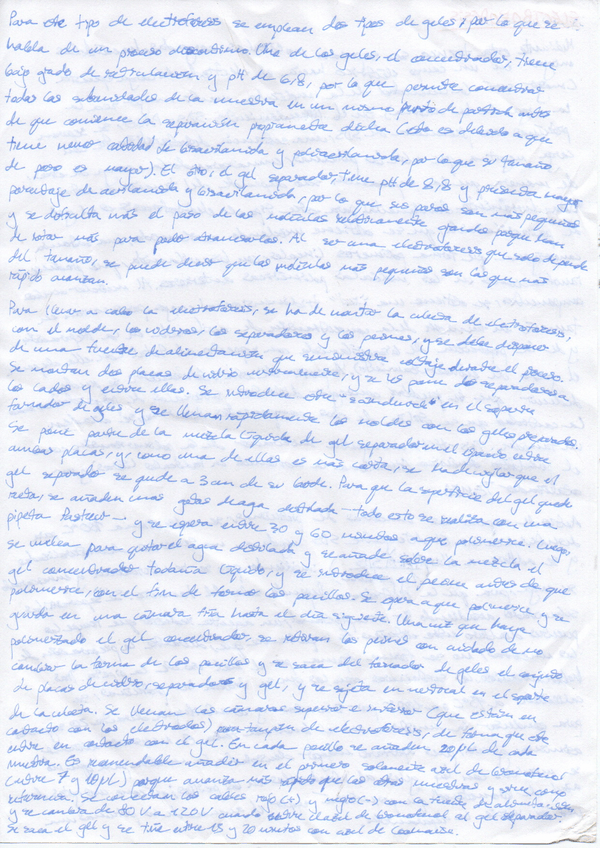 Para este tipo de electroforesis se emplean dos tipos de geles, por lo que se
habla de un proceso discontinuo. Uno de los geles, el concentrador, tiene
bajo grado de reticulación y pH de 6,8, por lo que permite concentrar
todas las subunidades de la muestra en un mismo punto de partida antes
de que comience la separación propiamente dicha (esto es debido a que
tiene menor cantidad de bisacrilamida y poliacrilamida, por lo que su tamaño
de poro es mayor). El otro, el gel separador, tiene pH de 8,8 y presenta mayor
porcentaje de acrilamida y bisacrilamida, por lo que sus poros son más pequeños
y se dificulta más el paso de las moléculas relativamente grandes porque han
de rotar más para poder atravesarlos. Al ser una electroforesis que solo depende
del tamaño, se puede decir que las moléculas más pequeñas son las que más
rápido avanzan.
Para llevar a cabo la electroforesis, se ha de montar la cubeta de electroforesis,
con el molde, los vidrios, los separadores y los peines, y se debe disponer
de una fuente de alimentación que suministre voltaje durante el proceso.
Se montan dos placas de vidrio verticalmente, y se les pone dos separadores a
los lados y entre ellas. Se introduce este "sandwich" en el soporte
formador de geles y se llenan rápidamente los moldes con los geles preparados.
Se pone parte de la mezcla líquida de gel separador en el espacio entre
ambas placas, y, como una de ellas es más corta, se ha de vigilar que el
gel separador se quede a 3 cm de su borde. Para que la superficie del gel quede
recta, se añaden unas gotas de agua destilada —todo esto se realiza con una
pipeta Pasteur— y se espera entre 30 y 60 minutos a que polimerice. Luego,
se inclina para quitar el agua destilada y se añade sobre la mezcla el
gel concentrador todavía líquido, y se introduce el peine antes de que
polimerice, con el fin de formar los pocillos. Se espera a que polimerice y se
guarda en una cámara fría hasta el día siguiente. Una vez que haya
polimerizado el gel concentrador, se retiran los peines con cuidado de no
cambiar la forma de los pocillos y se saca del formador de geles el conjunto
de placas de vidrio, separadores y gel, y se sujeta en vertical en el soporte
de la cubeta. Se llenan las cámaras superior e inferior (que están en
contacto con los electrodos) con tampón de electroforesis, de forma que este
entre en contacto con el gel. En cada pocillo se añaden 20 µL de cada
muestra. Es recomendable añadir en el primero solamente azul de bromofenol
(entre 7 y 10 µL) porque avanza más rápido que las otras muestras y sirve como
referencia. Se conectan los cables rojo (+) y negro (-) con la fuente de alimentación
y se cambia de 80 V a 120 V cuando entre el azul de bromofenol al gel separador.
Se saca el gel y se tiñe entre 15 y 20 minutos con azul de Coomassie.